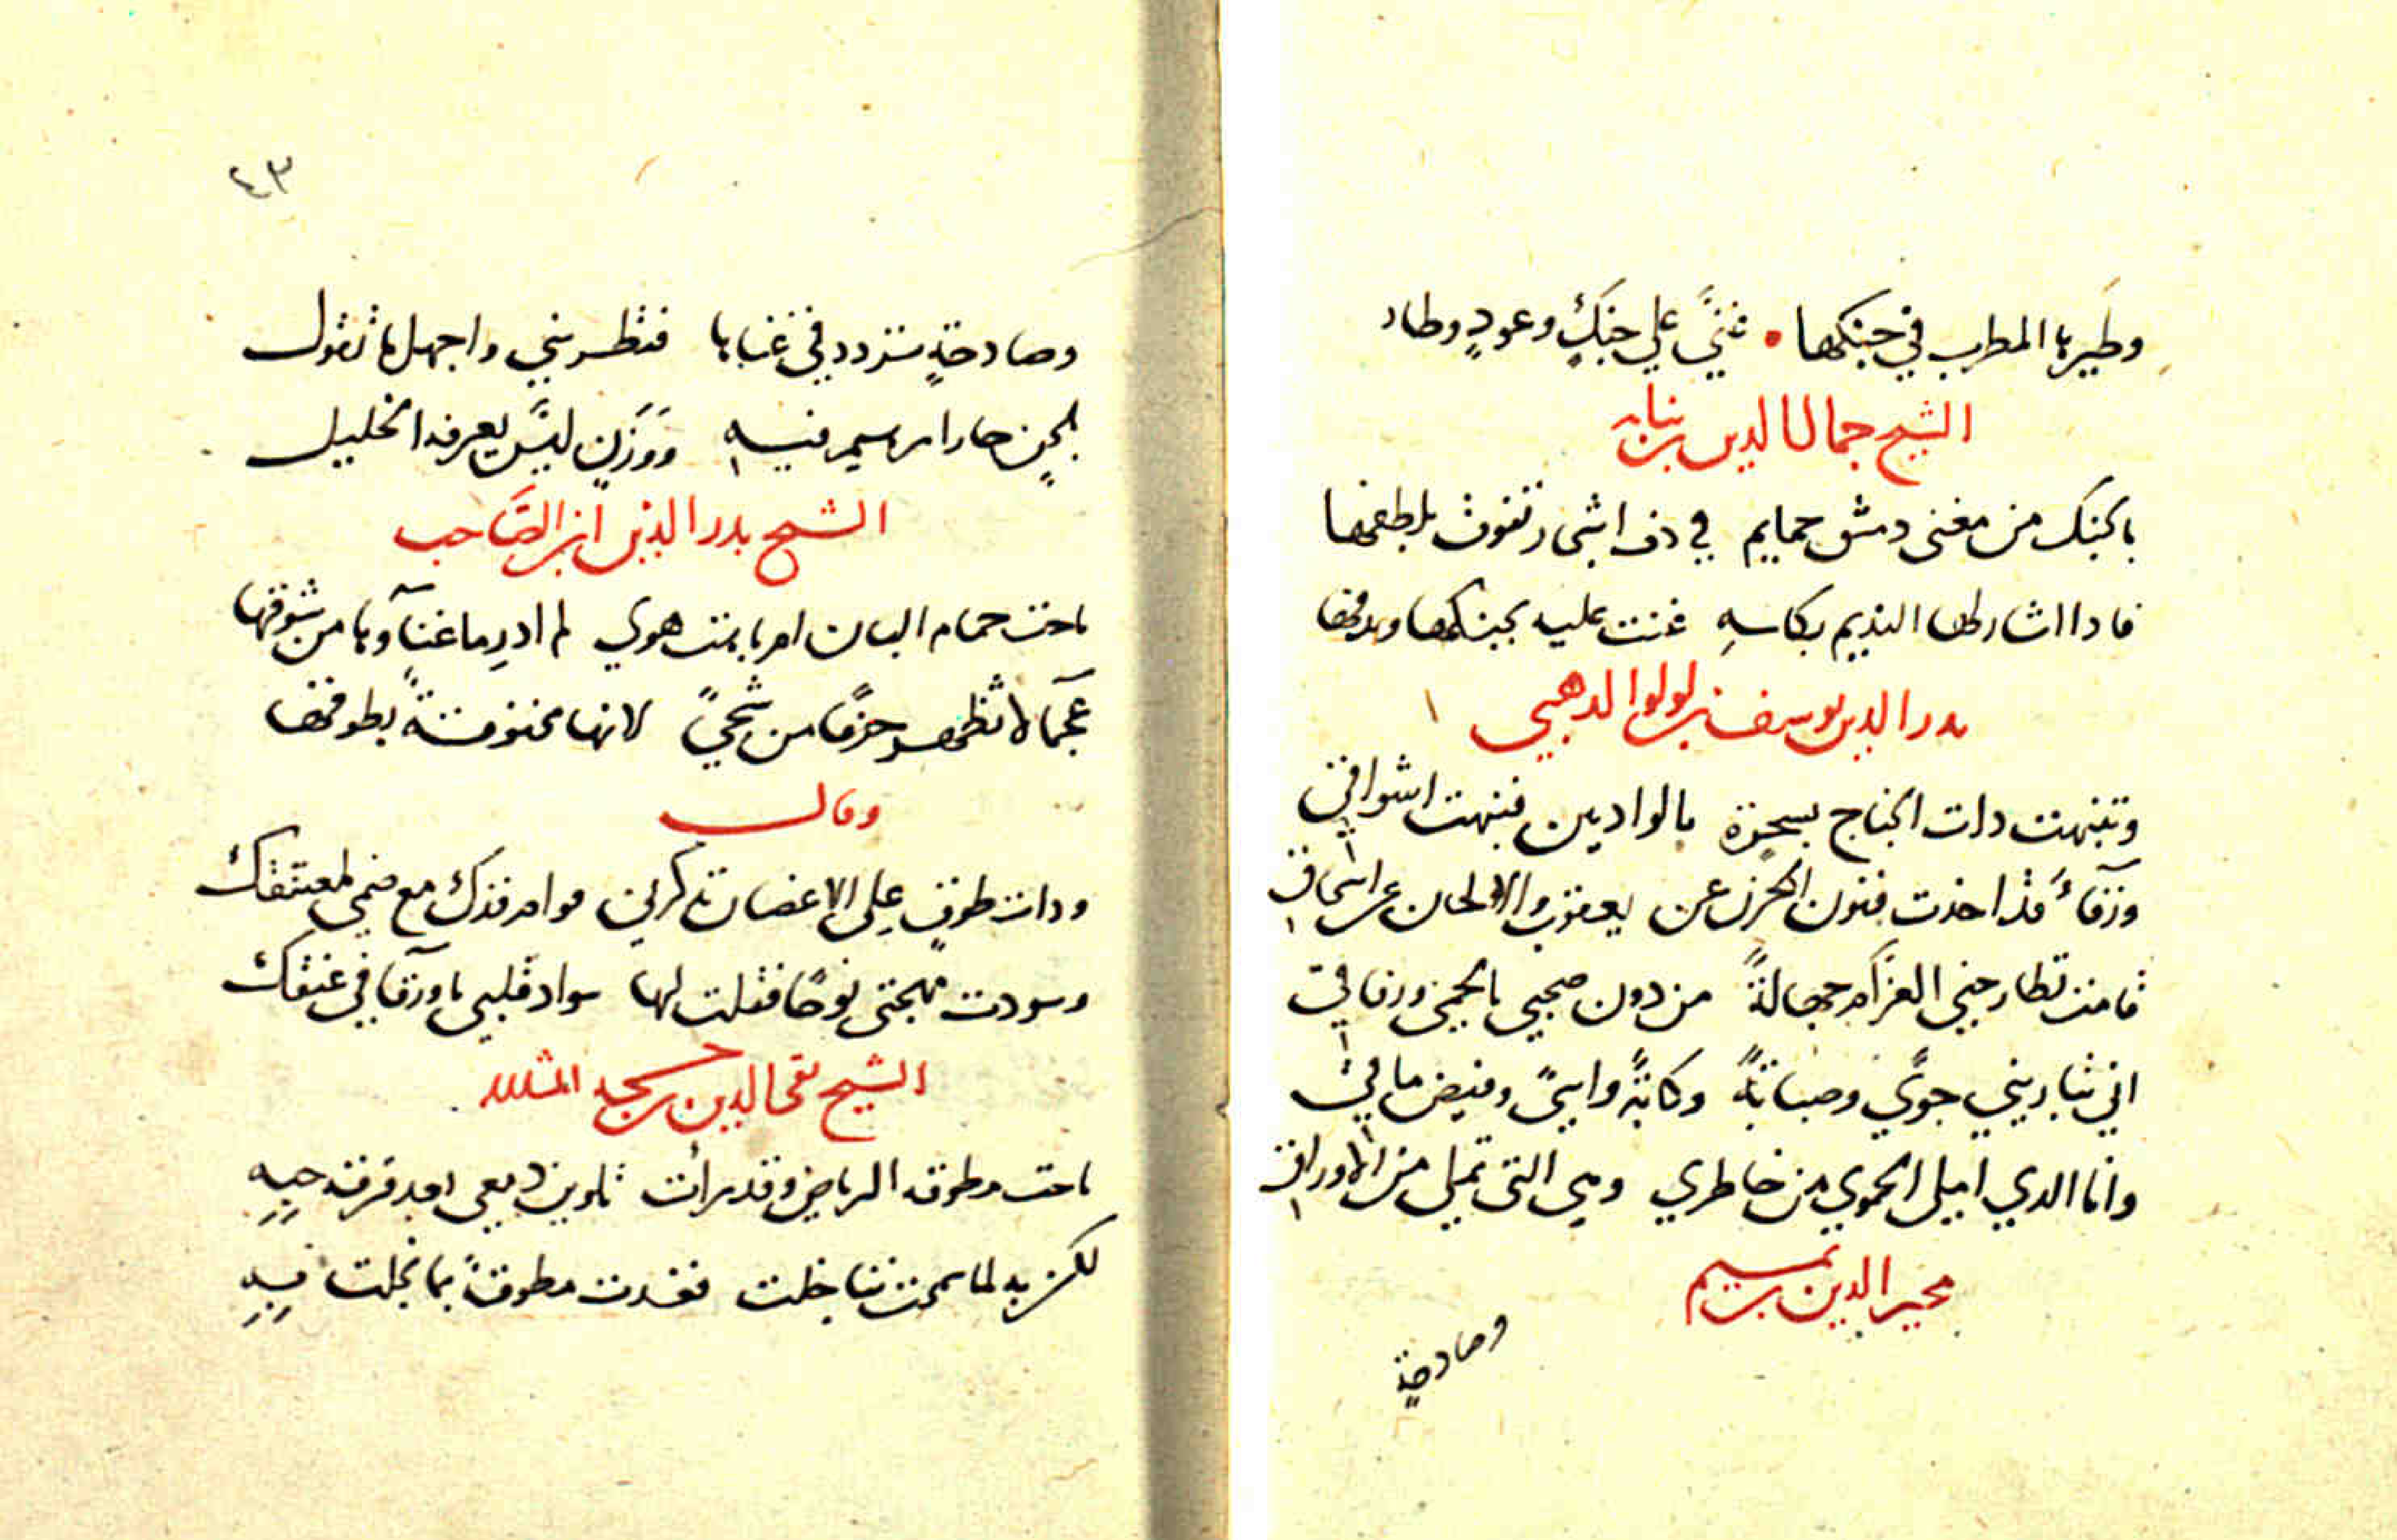 وطيرها المطرب في جنكها • غنيَّ علي جنكٍ وعودٍ وطار
الشيخ جمال الدين بن نباته
بالجنك من مغنى دمشق حمايم في دف اشجار تفوق بلطفها
فاذا اشار لها النديم بكاسهِ غنت عليه بجنكها وبدفها
بدر الدين يوسف بن لولوا الدهبي
وتنبهت ذات الجناح بسحرة بالواديين فنبهت اشواقي
ورَقآءُ قد اخذت فنون الحزن عن يعقوب والالحان عن اسحاق
قامت تطارحني الغرام جهالةً من دون صحبي بالحمى ورفاقي
اني تباريني جوًي وصبابةً وكابةً واسىً وفيض ماقي
وانا الدي املي الجوي من خاطري وهي التى تملي من الاوراق
مجير الدين بن تميم
وصادحةٍ
٤٣
وصادحةٍ تردد في غناها فتطربني واجهل ما تقول
بلحنٍ حار ابراهيم فيه ووَزنٍ ليسَ يعرفه الخليل
الشيخ بدر الدين ابن الصَّاحب
ناحت حمام البان ام نابت هوي لم ادرِ ما غنآوها من شوقها
عجَمآ لا تظهر حزنًا من شجيً لانها مخنوقةً بطوقها
وقال
وذات طوقٍ على الاغصان تذكرني قوام قدك مع ضمي لمعتنقك
وسودت مهجتى نوحًا فقلت لها سواد قلبي يا ورَقآ في عنقك
الشيخ تقي الدين بن حجه
ناحت مطوقة الرياض وقد رأت تلوين دمعي بعد فرقة حبهِ
لكن به لما سمحت تباخلت فغدت مطوقةً بما بخلت بهِ